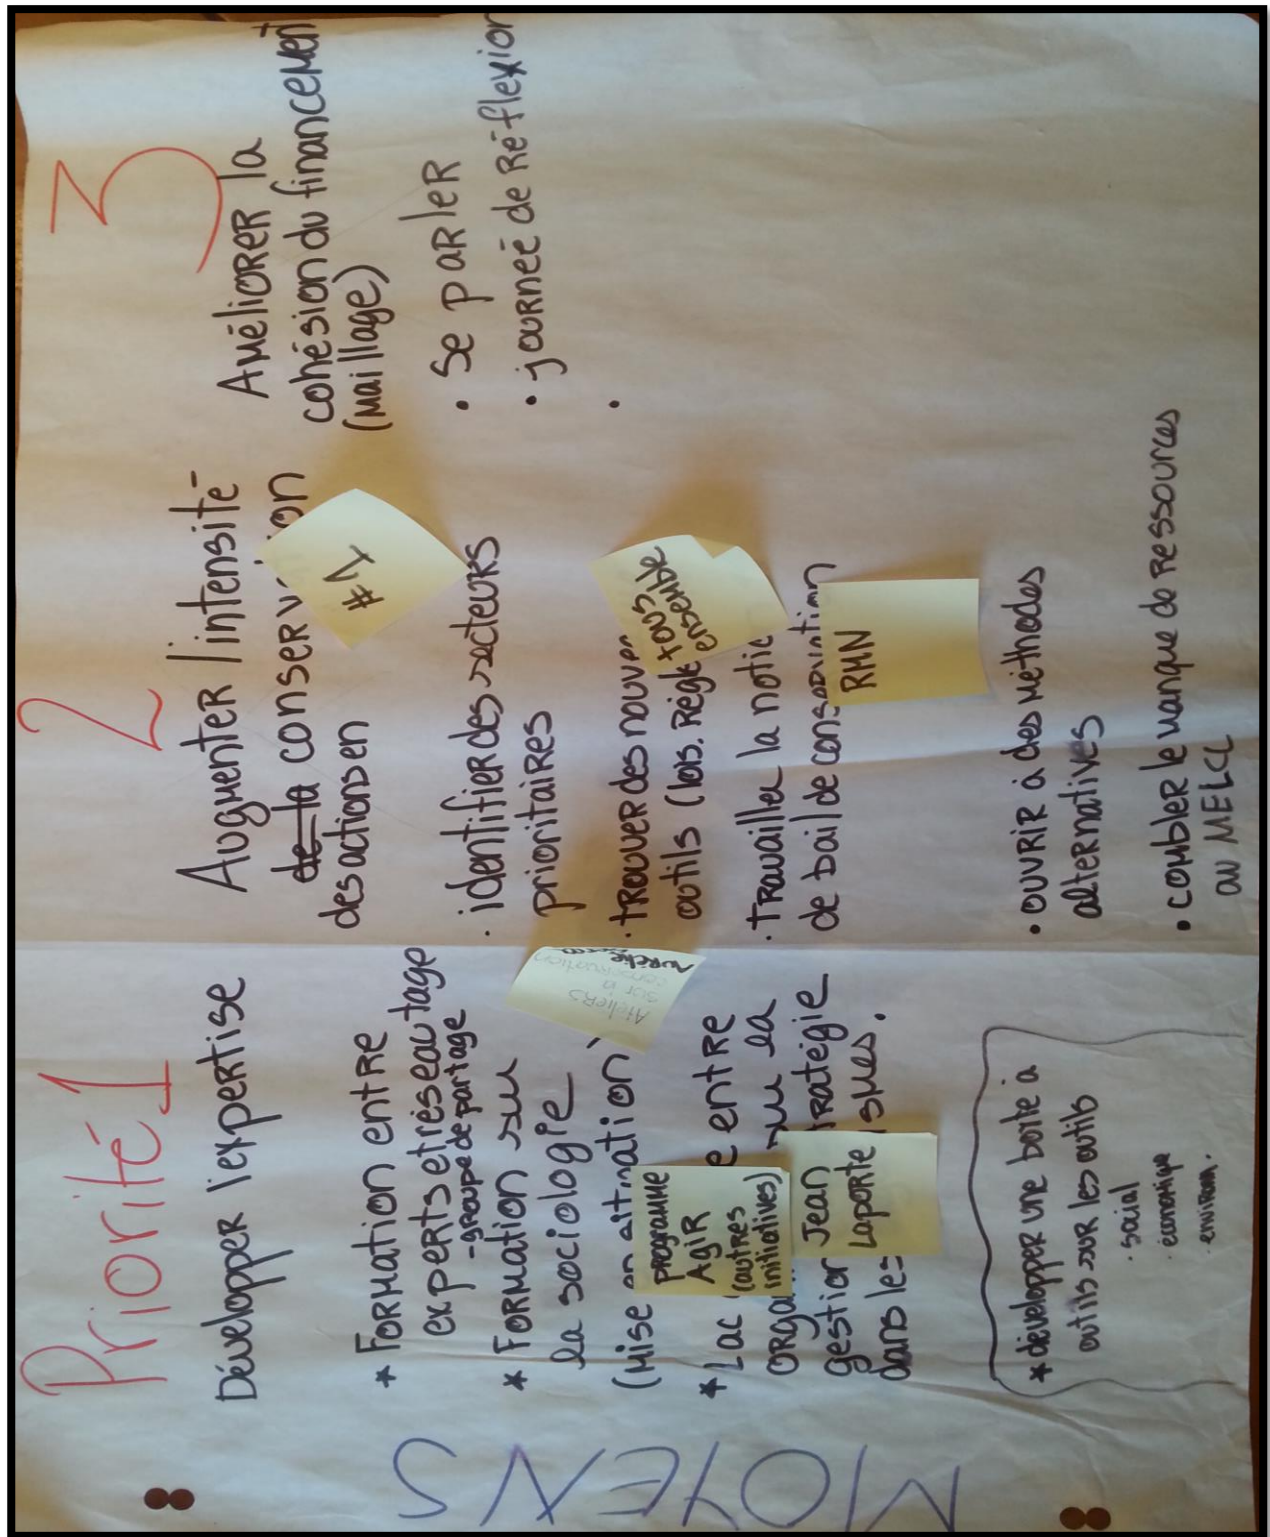 Priorité 1
Développer l'expertise
* Formation entre
experts et réseautage
- groupe de partage
* Formation sur
la sociologie
(Mise en situation)
Ateliers
sur la
conservation
Aurélie
* Lac entre
orga sur la
gestion stratégie
dans les
programme
Agir
(autres
initiatives)
Jean
Laporte
* développer une boîte à
outils sur les outils
. social
. économique
. environ.
2
Augmenter l'intensité
de la conservation
des actions en
#1
. identifier des secteurs
prioritaires
. trouver des nouve
outils (lois. Régle
tous
ensemble
. Travailler la notio
de bail de conservation
RMN
• ouvrir à des méthodes
alternatives
• combler le manque de ressources
au MELCC
3
Améliorer la
cohésion du financement
(maillage)
• Se parler
• journeé de réflexion
•
MOYENS